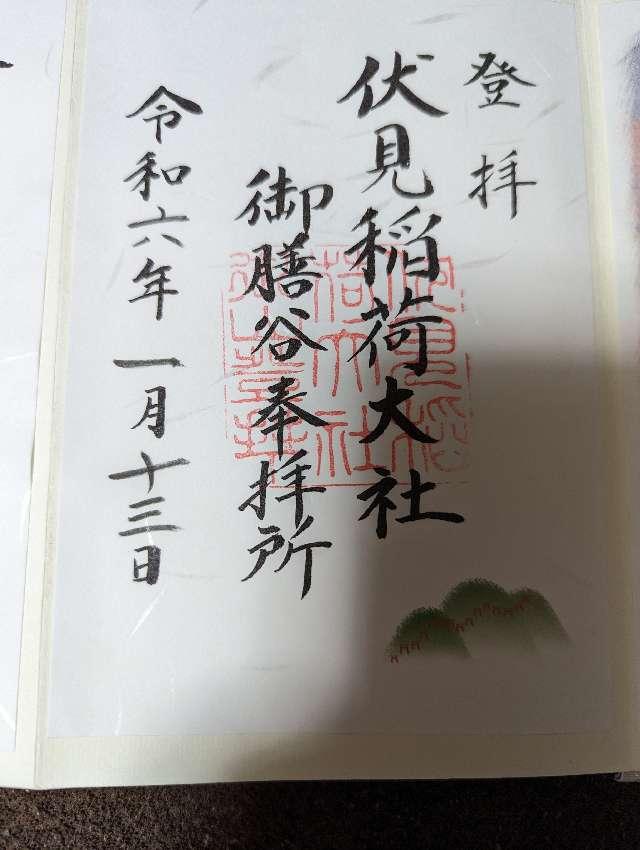 登拝
伏見稲荷大社
御膳谷奉拝所
令和六年一月十三日